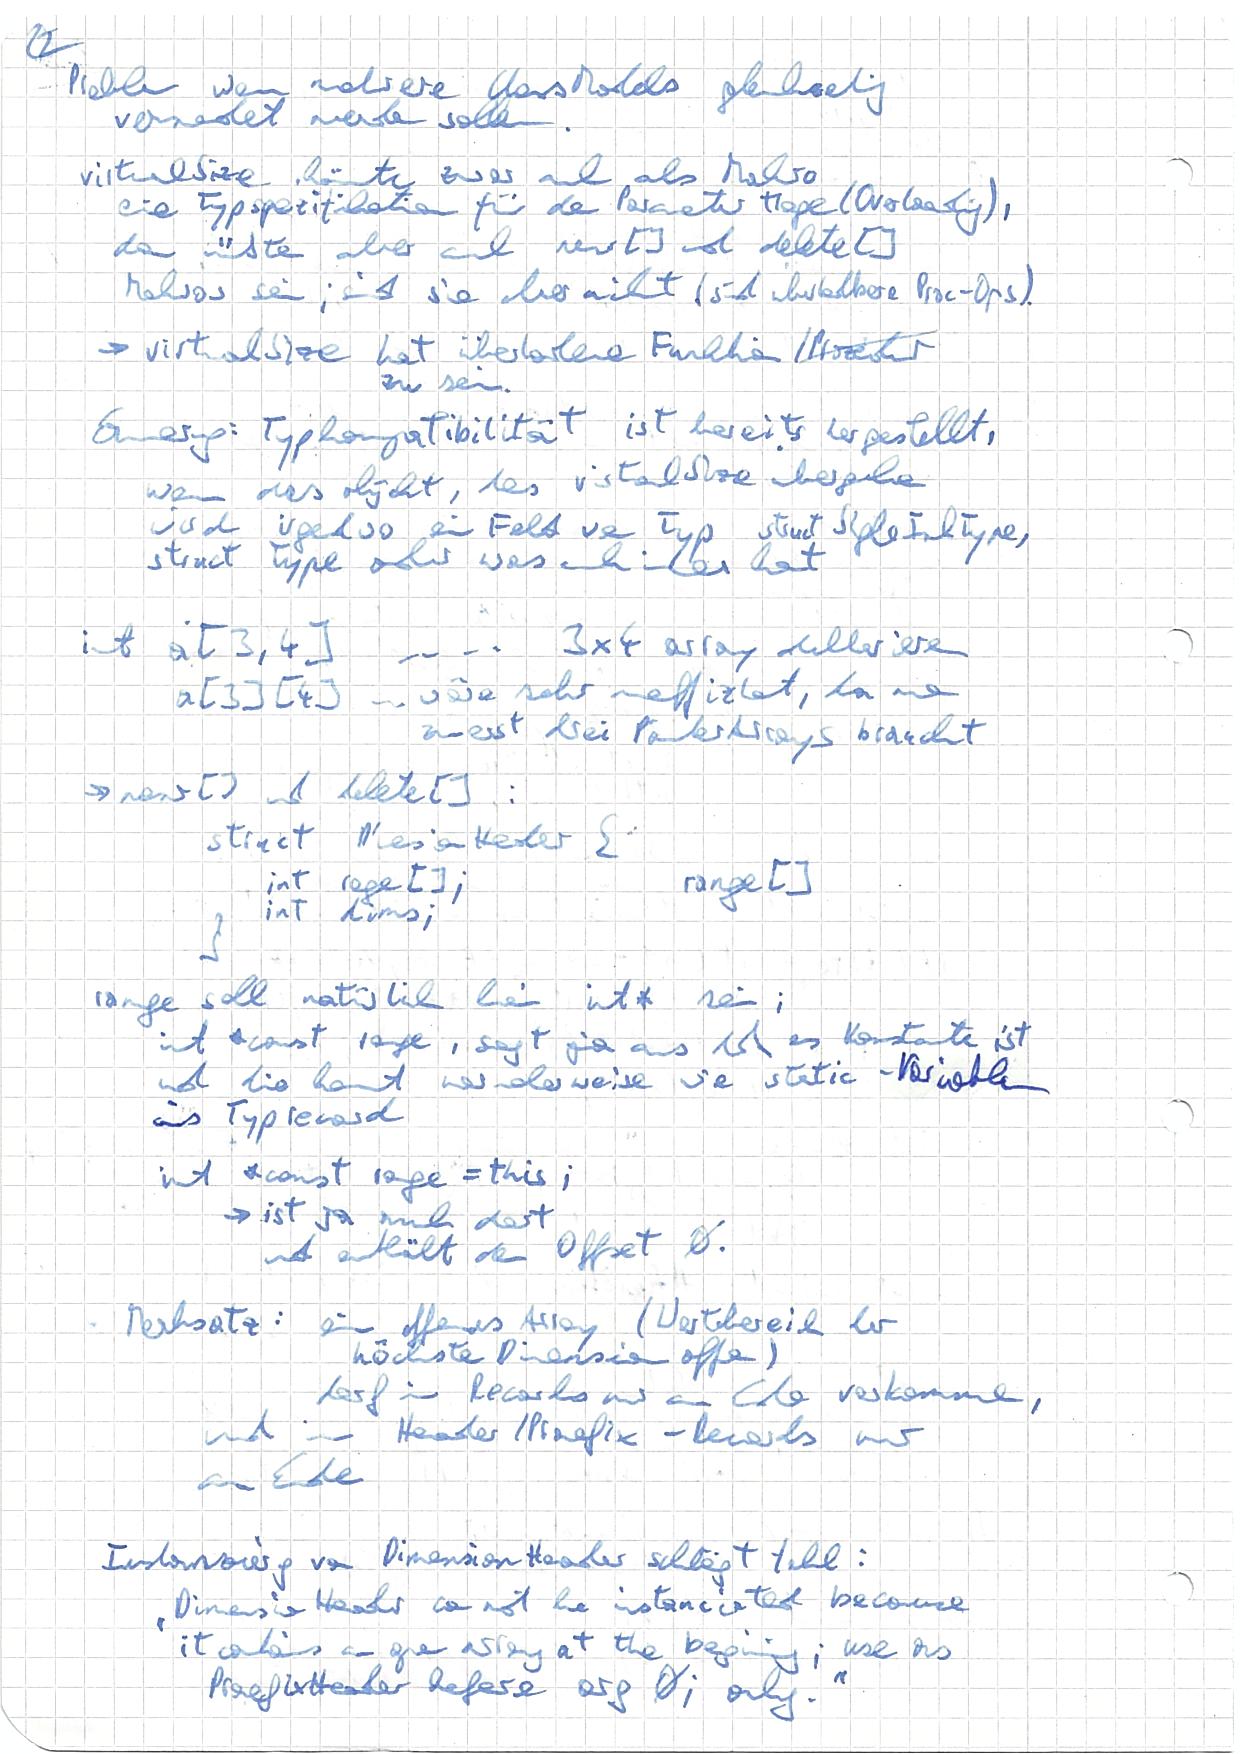 Problem wenn mehrere ClassModels gleichzeitig
verwendet werden sollen.
virtualSize könnte zwar auch als Makro
eine Typspezifikation für die Parameter tragen (Overloading),
dann müßten aber auch new[] und delete[]
Makros sein; sind sie aber nicht (sind überladbare Proc-Ops).
→ virtualSize hat überladene Funktion/Prozedur
zu sein.
Erinnerung: Typkompatibilität ist bereits hergestellt,
wenn das Objekt, das virtualSize übergeben
wird irgendwo ein Feld vom Typ struct SingleInhType,
struct Type oder was auch immer hat
int a[3,4] ..... 3x4 array deklarieren
a[3][4] ... wäre sehr ineffizient, da man
zuerst drei PointerArrays braucht
→ new[] und delete[] :
struct DimensionHeader {
int range[]; range[]
int dims;
}
range soll natürlich kein int* sein;
int *const range, sagt ja aus daß es Konstante ist
und die kommt normalerweise wie static-Variablen
ins Typrecord
int *const range = this;
→ ist ja auch dort
und enthält den Offset 0.
Merksatz: ein offenes Array (Wertebereich der
höchsten Dimension offen)
darf in Records nur am Ende vorkommen,
und in Header/Praefix-Records nur
am Ende
Instanzierung von DimensionHeader schlägt fehl:
„DimensionHeader can not be instanciated because
it contains an open array at the beginning; use as
PraefixHeader before arg 0; only."